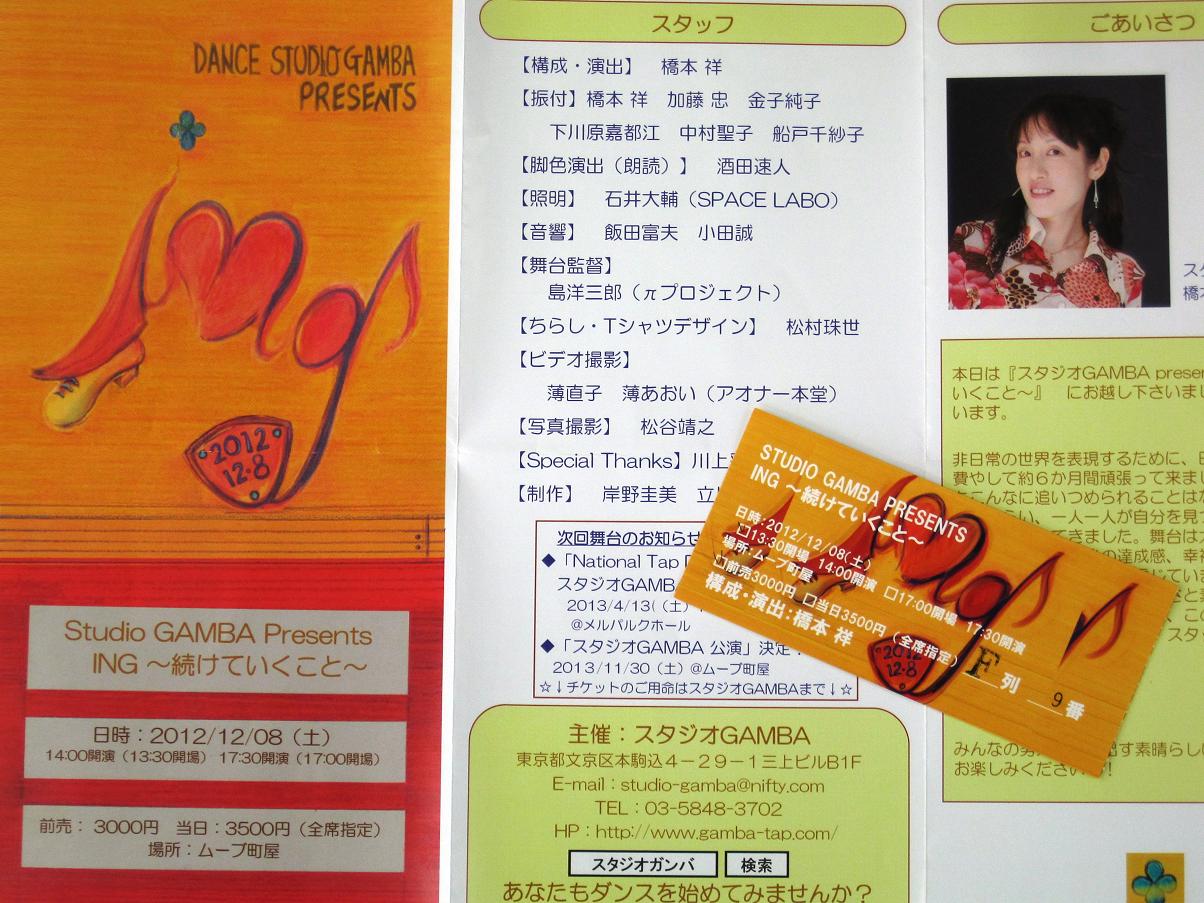 DANCE STUDIO GAMBA
PRESENTS
ING
2012
12・8
Studio GAMBA Presents
ING ～続けていくこと～
日時：2012/12/08（土）
14:00開演（13:30開場） 17:30開演（17:00開場）
前売： 3000円　当日：3500円（全席指定）
場所：ムーブ町屋
スタッフ
【構成・演出】　橋本 祥
【振付】橋本 祥　加藤 忠　金子純子
下川原嘉都江　中村聖子　船戸千紗子
【脚色演出（朗読）】　酒田速人
【照明】　石井大輔（SPACE LABO）
【音響】　飯田富夫　小田誠
【舞台監督】
島洋三郎（πプロジェクト）
【ちらし・Tシャツデザイン】　松村珠世
【ビデオ撮影】
薄直子　薄あおい（アオナー本堂）
【写真撮影】　松谷靖之
【Special Thanks】川上
【制作】　岸野圭美
次回舞台のお知らせ
◆「National Tap
スタジオGAMBA
2013/4/13(（土）
@メルパルクホール
◆「スタジオGAMBA 公演」決定
2013/11/30（土）@ムーブ町屋
☆↓チケットのご用命はスタジオGAMBAまで↓☆
主催：スタジオGAMBA
東京都文京区本駒込４－２９－１三上ビルB1F
E-mail：studio-gamba@nifty.com
TEL：03-5848-3702
HP：http://www.gamba-tap.com/
スタジオガンバ　検索
あなたもダンスを始めてみませんか？
ごあいさつ
ス
橋
本日は『スタジオGAMBA presen
いくこと～』　にお越し下さいまし
います。
非日常の世界を表現するために、
費やして約６か月間頑張って来まし
こんなに追いつめられることは
い、一人一人が自分を見つ
てきました。舞台は
の達成感、幸
みんなの
出す素晴らし
お楽しみください
STUDIO GAMBA PRESENTS
ING ～続けていくこと～
日時：2012/12/08（土）
□13:30開場　14:00開演　□17:00開場　17:30開演
場所：ムーブ町屋
□前売3000円 □当日3500円（全席指定）
構成・演出：橋本 祥
2012
12・8
F列　9番